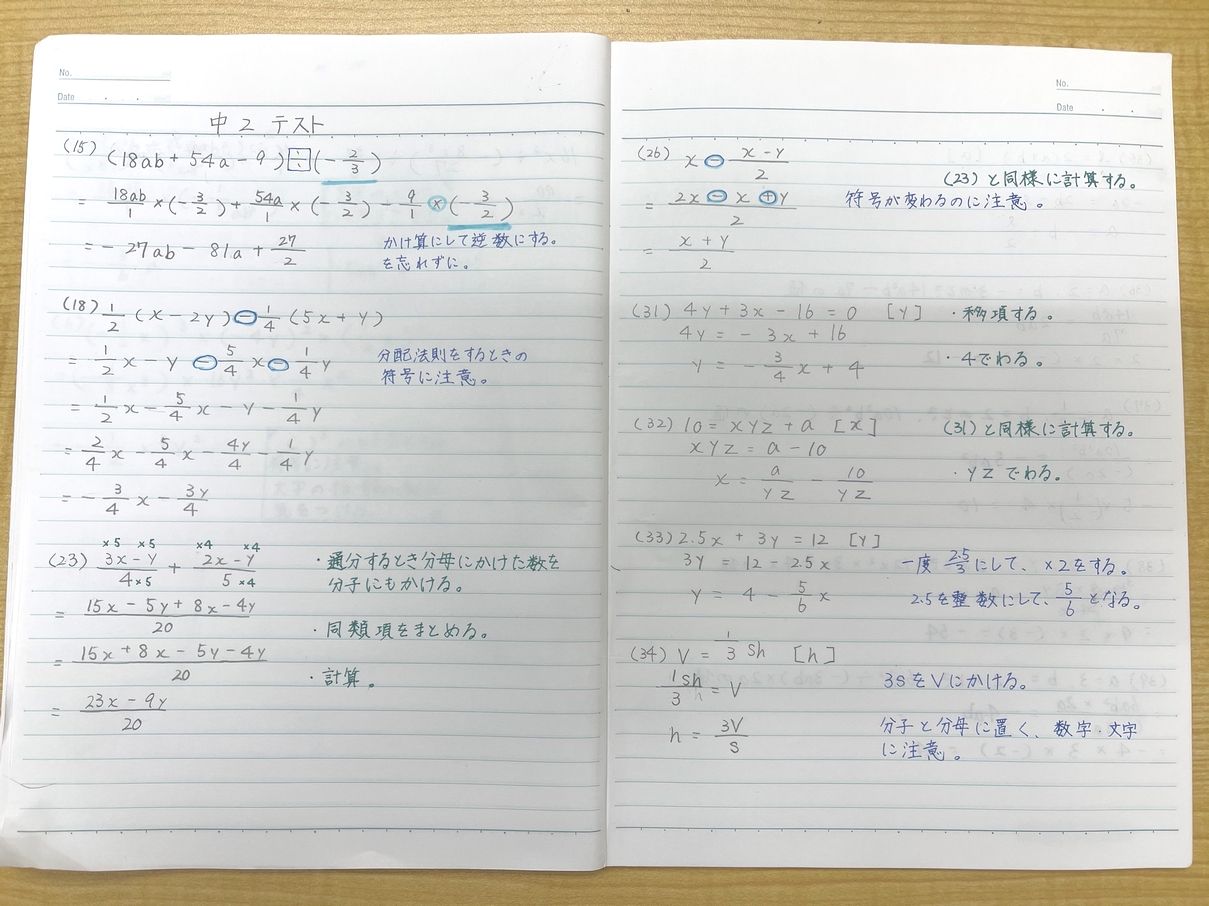 No.
Date
中2 テスト
(15) (18ab + 54a - 9) ÷ (- 2/3)
= 18ab/1 × (- 3/2) + 54a/1 × (- 3/2) - 9/1 × (- 3/2)
= - 27ab - 81a + 27/2
かけ算にして逆数にする。
を忘れずに。
(18) 1/2 (x - 2y) - 1/4 (5x + y)
= 1/2 x - y - 5/4 x - 1/4 y
分配法則をするときの
符号に注意。
= 1/2 x - 5/4 x - y - 1/4 y
= 2/4 x - 5/4 x - 4y/4 - 1/4 y
= - 3/4 x - 3y/4
×5 ×5 ×4 ×4
(23) 3x - y/4×5 + 2x - y/5×4
・通分するとき分母にかけた数を
分子にもかける。
= 15x - 5y + 8x - 4y/20
・同類項をまとめる。
= 15x + 8x - 5y - 4y/20
・計算。
= 23x - 9y/20
No.
Date
(26) x - x - y/2
(23)と同様に計算する。
= 2x - x + y/2
符号が変わるのに注意。
= x + y/2
(31) 4y + 3x - 16 = 0 [y]
・移項する。
4y = - 3x + 16
y = - 3/4 x + 4
・4でわる。
(32) 10 = xyz + a [x]
(31)と同様に計算する。
xyz = a - 10
x = a/yz - 10/yz
・yzでわる。
(33) 2.5x + 3y = 12 [y]
3y = 12 - 2.5x
一度 2.5/3 にして、×2をする。
y = 4 - 5/6 x
2.5を整数にして、5/6となる。
(34) V = 1/3 sh [h]
1sh/3 = V
3sをVにかける。
h = 3V/s
分子と分母に置く、数字・文字
に注意。